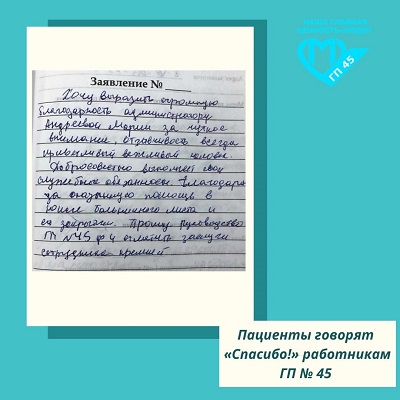 НАША СЛАБОСТЬ
ГП 45
Заявление №
Хочу выразить огромную
благодарность администратору
Андреевой Марии за чуткое
внимание отзывчивость всегда
приветливый вежливый человек.
Добросовестно выполняет свои
служебные обязанности. Благодарю
за оказанную помощь в
поиске больничного листа и
его закрытии. Прошу руководство
ГП №45 ф 4 отметить заслуги
сотрудника премией
Пациенты говорят
«Спасибо!» работникам
ГП № 45